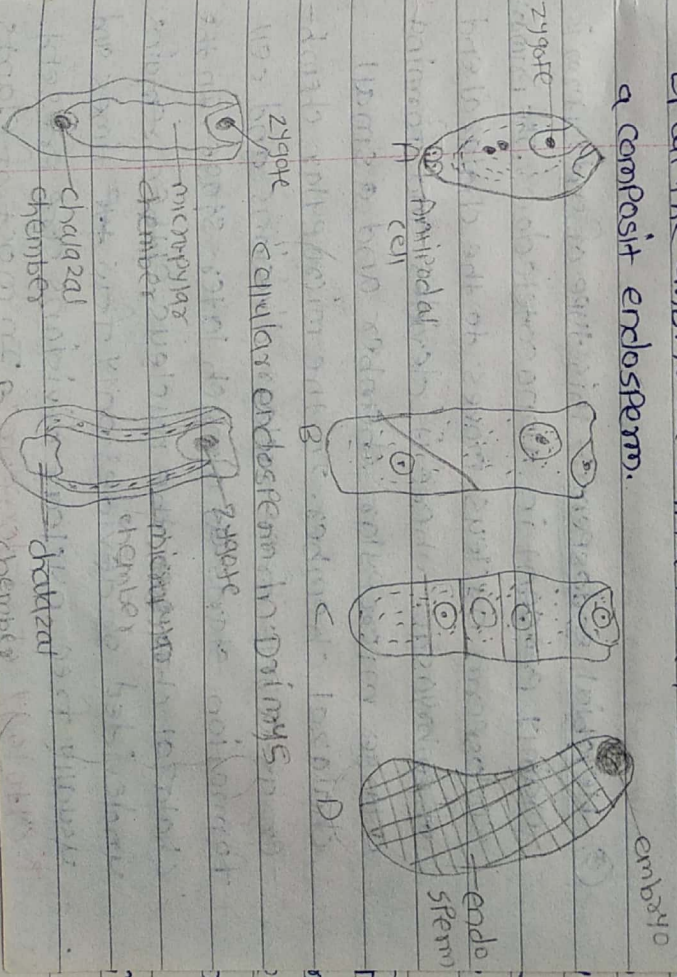 a composit endosperm.
zygote
Antipodal
cell
embryo
endo
sperm
A
B
C
D
cellular endosperm In Drimys
zygote
micropylar
chember
chalazal
chember
zygote
micropylar
chember
chalazal
chember